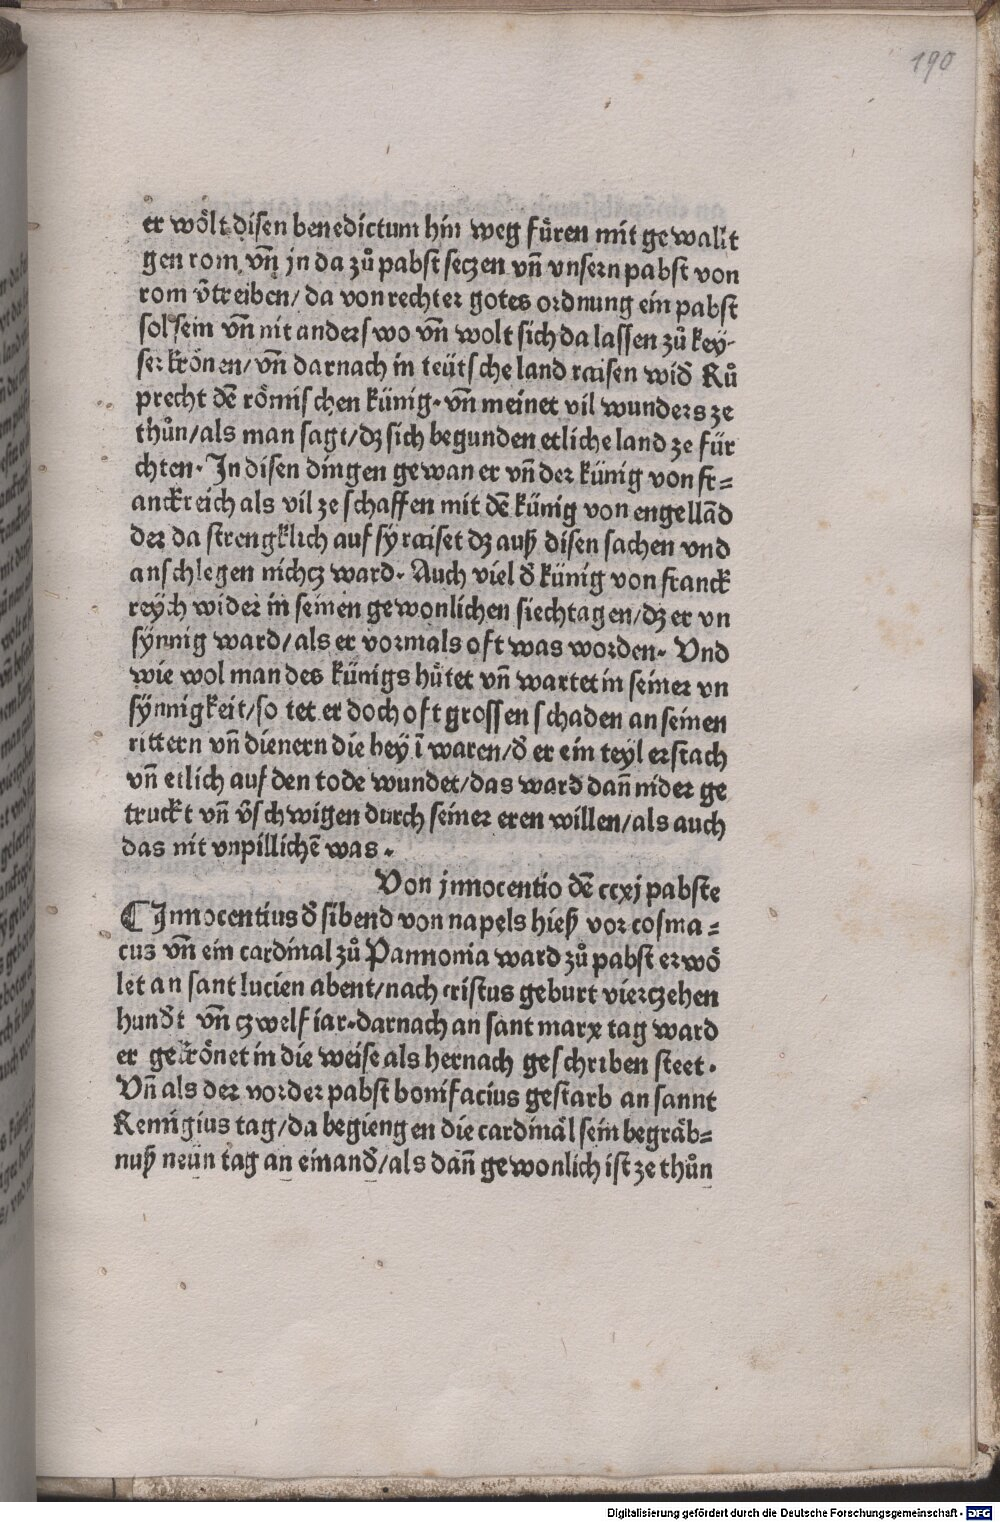 190
er woͤlt disen benedictum hin weg fuͤren mit gewallt
gen rom vn̄ jn da zuͦ pabst seczen vn̄ vnsern pabst von
rom v̄treiben/ da von rechter gotes ordnung ein pabst
sol sein vn̄ nit anderswo vn̄ wolt sich da lassen zuͦ key-
ser kroͤnen/ vn̄ darnach in teütsche land raisen wid̄ Ruͦ
precht dē roͤmischen künig. vn̄ meinet vil wunders ze
thuͦn/ als man sagt/ dz sich begunden etliche land ze für
chten. In disen dingen gewan er vn̄ der künig von fr=
anckreich als vil ze schaffen mit dē künig von engellād
der da strengklich auf sy raiset dz auß disen sachen vnd
anschlegen nichcz ward. Auch viel d̄ künig von franck
reych wider in seinen gewonlichen siechtagen/ dz er vn
synnig ward/ als er vormals oft was worden. Vnd
wie wol man des künigs huͤtet vn̄ wartet in seiner vn
synnigkeit/ so tet er doch oft grossen schaden an seinen
rittern vn̄ dienern die bey ī waren/ d̄ er ein teyl erstach
vn̄ etlich auf den tode wundet/ das ward dañ nider ge
truckt vn̄ v̄schwigen durch seiner eren willen/ als auch
das nit vnpillichē was.
Von jnnocentio dē ccxj pabste
¶ Innocentius d̄ sibend von napels hieß vor cosma=
cus vn̄ ein cardinal zuͦ Pannonia ward zuͦ pabst erwoͤ
let an sant lucien abent/ nach cristus geburt vierczehen
hund̄t vn̄ czwelf iar. darnach an sant marx tag ward
er gekroͤnet in die weise als hernach geschriben steet.
Vn̄ als der vorder pabst bonifacius gestarb an sannt
Remigius tag/ da begiengen die cardinaͤl sein begraͤb=
nuß neün tag an einand̄/ als dañ gewonlich ist ze thuͦn
Digitalisierung gefördert durch die Deutsche Forschungsgemeinschaft - DFG